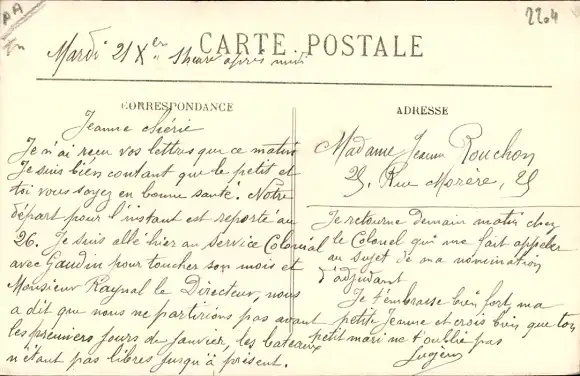 2204
CARTE POSTALE
Mardi 21 Xer 1 heure après midi
CORRESPONDANCE
Jeanne chérie
Je n'ai reçu vos lettres que ce matin
Je suis bien contant que le petit et
toi vous soyez en bonne santé. Notre
départ pour l'instant est reporté au
26. Je suis allé hier au service Colonial
avec Gaudin pour toucher son mois et
Monsieur Raynal le Directeur, nous
a dit que nous ne partirions pas avant
les premiers jours de janvier, les bateaux
n'étant pas libres jusqu'à présent.
ADRESSE
Madame Jeanne Rouchon
25, Rue Morère, 25
Je retourne demain matin chez
le Colonel qui me fait appeler
au sujet de ma nomination
d'adjudant
Je t'embrasse bien fort, ma
petite Jeanne et crois bien que ton
petit mari ne t'oublie pas
Eugène